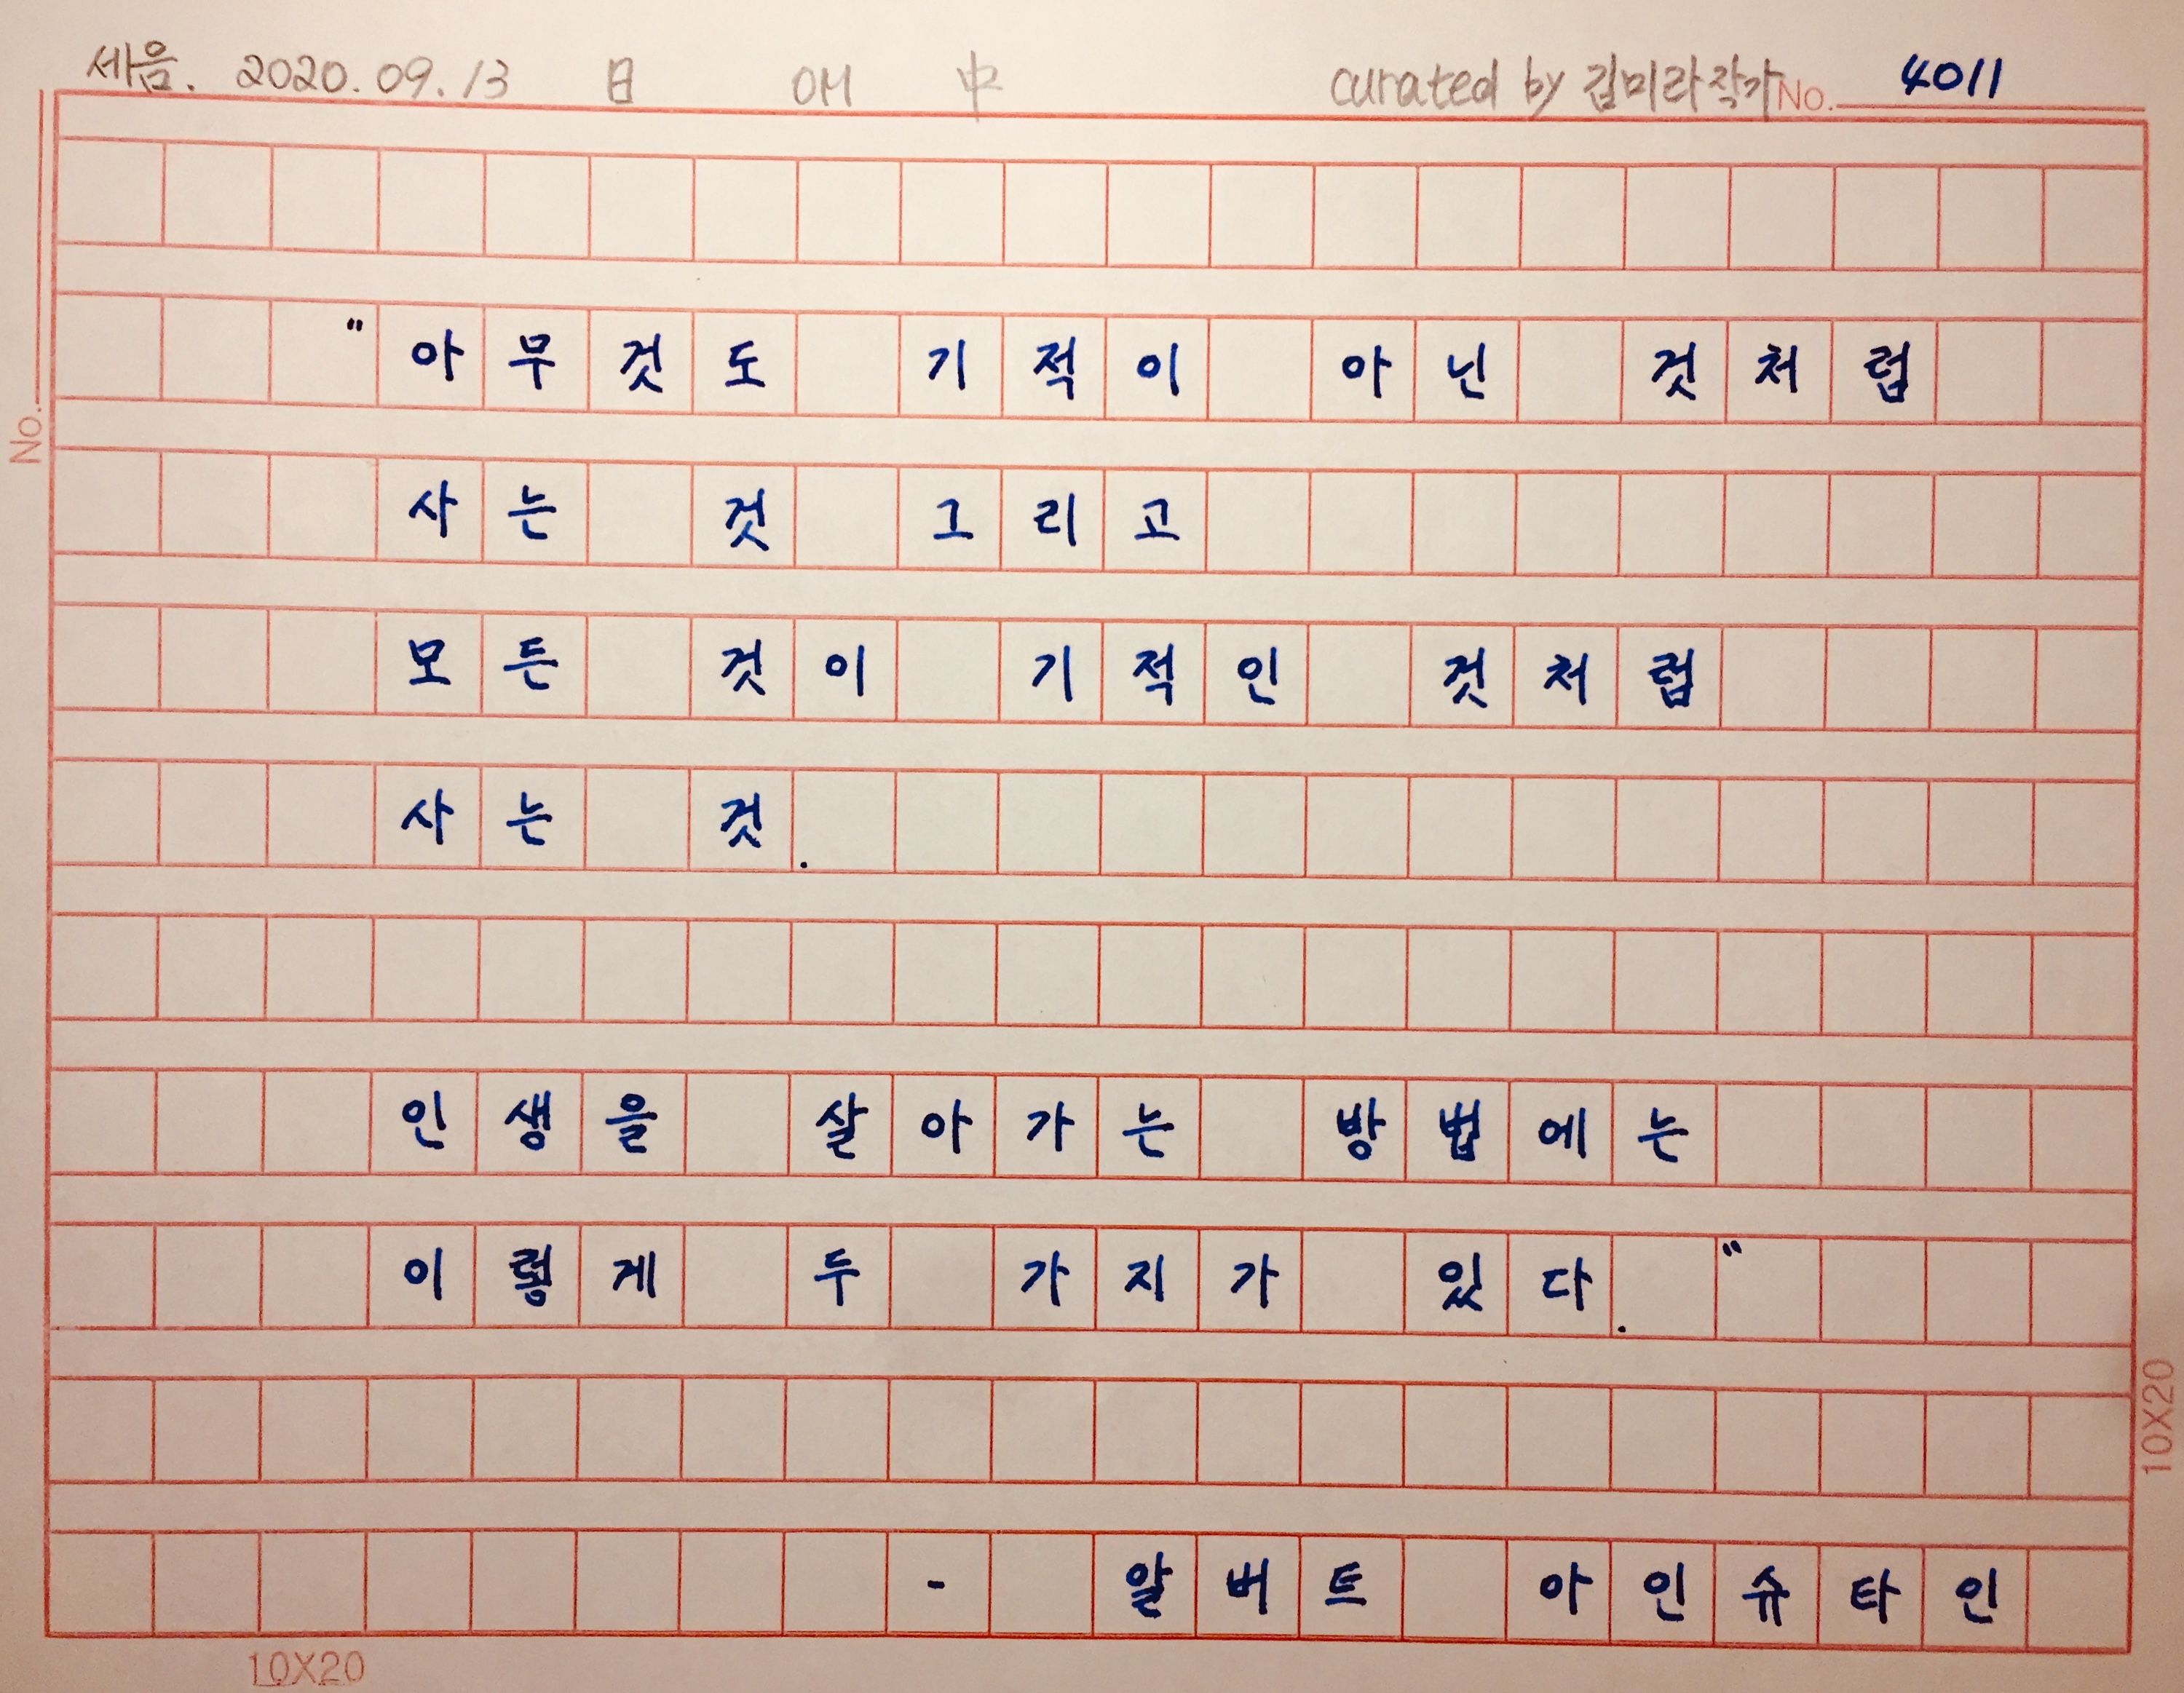 세음. 2020.09.13 日 OM 中 curated by 김미라작가 No. 4011
No.
"아무것도 기적이 아닌 것처럼
사는 것 그리고
모든 것이 기적인 것처럼
사는 것.
인생을 살아가는 방법에는
이렇게 두 가지가 있다."
- 알버트 아인슈타인
10X20
10X20